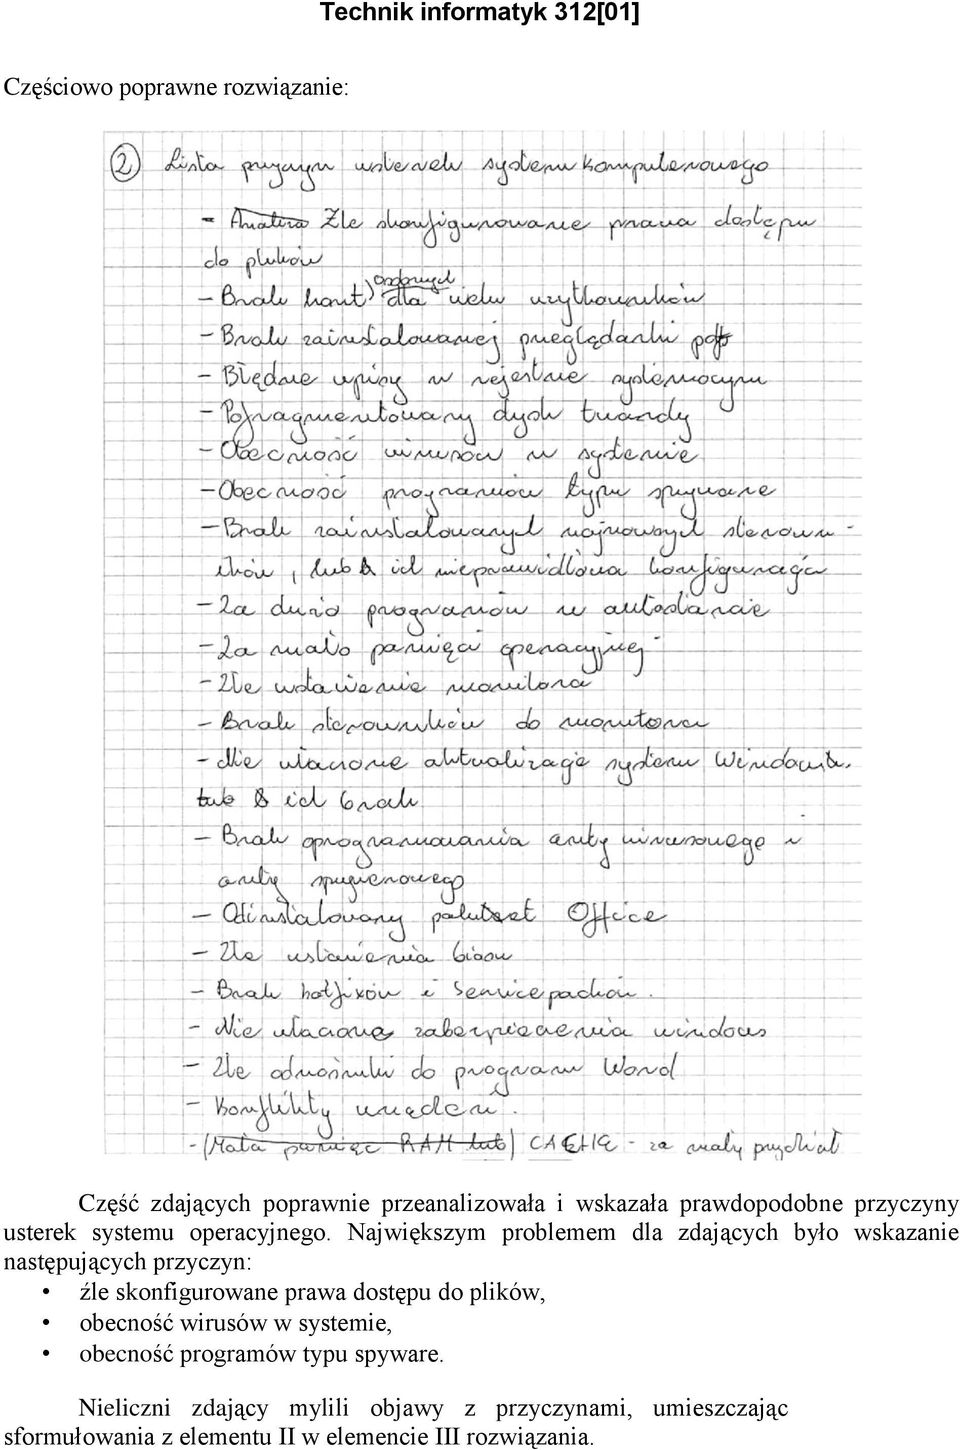 Technik informatyk 312[01]
Częściowo poprawne rozwiązanie:
② Lista przyczyn usterek systemu komputerowego
- Źle skonfigurowane prawa dostępu
do plików
- Brak kont osobnych dla wielu użytkowników
- Brak zainstalowanej przeglądarki pdf
- Błędne wpisy w rejestrze systemowym
- Pofragmentowany dysk twardy
- Obecność wirusów w systemie
- Obecność programów typu spyware
- Brak zainstalowanych najnowszych sterown-
ików, lub ich nieprawidłowa konfiguracja
- Za dużo programów w autostarcie
- Za mało pamięci operacyjnej
- Złe ustawienie monitora
- Brak sterowników do monitora
- Nie włączone aktualizacje systemu Windows.
lub ich brak
- Brak oprogramowania anty wirusowego i
anty spygierowego
- Odinstalowany pakiet Office
- Złe ustawienia biosu
- Brak hotfixów i Service packów.
- Nie włączone zabezpieczenia windows
- Złe odnośniki do program Word
- Konflikty urządzeń.
- (Mała pamięć RAM lub) CACHE - za mały przydział
Część zdających poprawnie przeanalizowała i wskazała prawdopodobne przyczyny
usterek systemu operacyjnego. Największym problemem dla zdających było wskazanie
następujących przyczyn:
• źle skonfigurowane prawa dostępu do plików,
• obecność wirusów w systemie,
• obecność programów typu spyware.
Nieliczni zdający mylili objawy z przyczynami, umieszczając
sformułowania z elementu II w elemencie III rozwiązania.